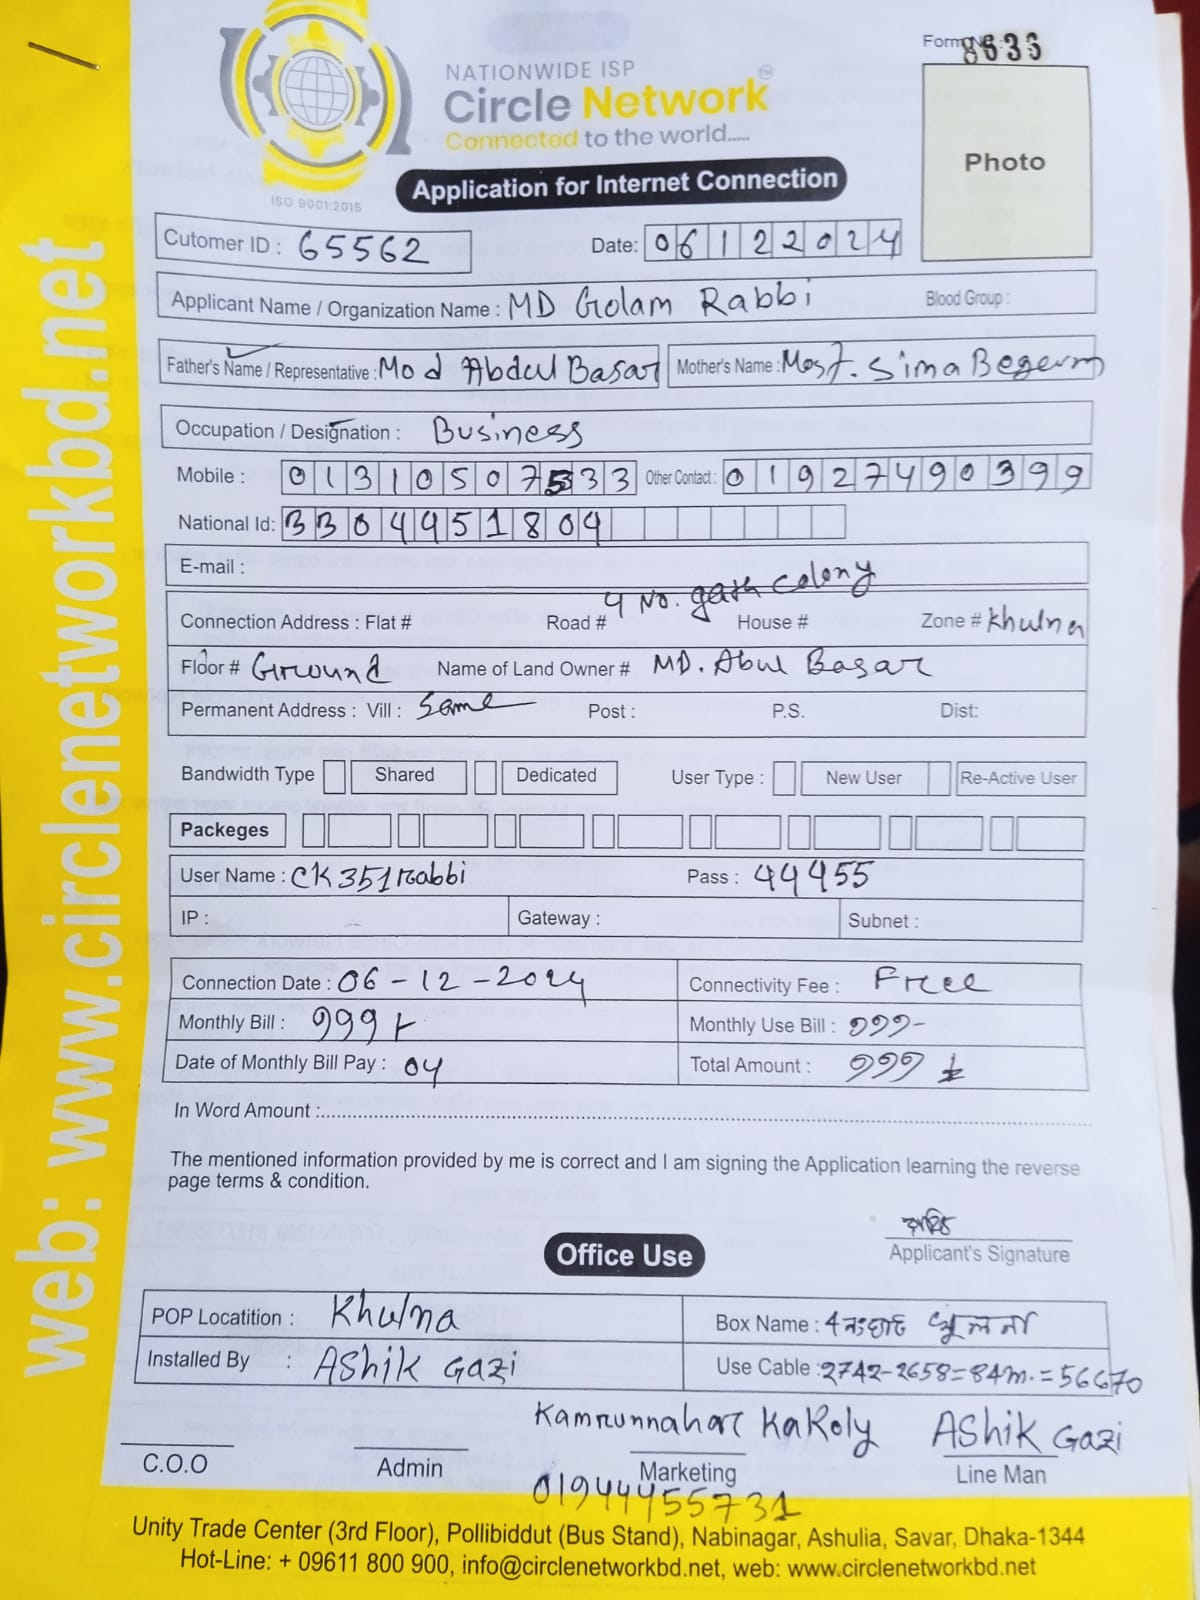 Form No. 8636
NATIONWIDE ISP
Circle Network
Connected to the world.....
ISO 9001:2015
Application for Internet Connection
Photo
Cutomer ID : 65562 Date: 06122024
Applicant Name / Organization Name : MD Golam Rabbi Blood Group :
Father's Name / Representative : Mod Abdul Basar Mother's Name : Most. Sima Begum
Occupation / Designation : Business
Mobile : 01310507533 Other Contact : 01927490399
National Id: 3304951804
E-mail :
4 No. gath colony
Connection Address : Flat # Road # House # Zone # Khulna
Floor # Ground Name of Land Owner # MD. Abul Basar
Permanent Address : Vill : Same Post : P.S. Dist:
Bandwidth Type Shared Dedicated User Type : New User Re-Active User
Packeges
User Name : CK351Rabbi Pass : 44455
IP : Gateway : Subnet :
Connection Date : 06-12-2024 Connectivity Fee : Free
Monthly Bill : 999 Monthly Use Bill : 999-
Date of Monthly Bill Pay : 04 Total Amount : 999
In Word Amount :
The mentioned information provided by me is correct and I am signing the Application learning the reverse
page terms & condition.
Applicant's Signature
Office Use
POP Locatition : Khulna Box Name : 4নংঘাট খুলনা
Installed By : Ashik Gazi Use Cable : 2742-2658=84m.=56670
Kamrunnahar Kakoly Ashik Gazi
C.O.O Admin Marketing Line Man
01944455731
Unity Trade Center (3rd Floor), Pollibiddut (Bus Stand), Nabinagar, Ashulia, Savar, Dhaka-1344
Hot-Line: + 09611 800 900, info@circlenetworkbd.net, web: www.circlenetworkbd.net
web: www.circlenetworkbd.net